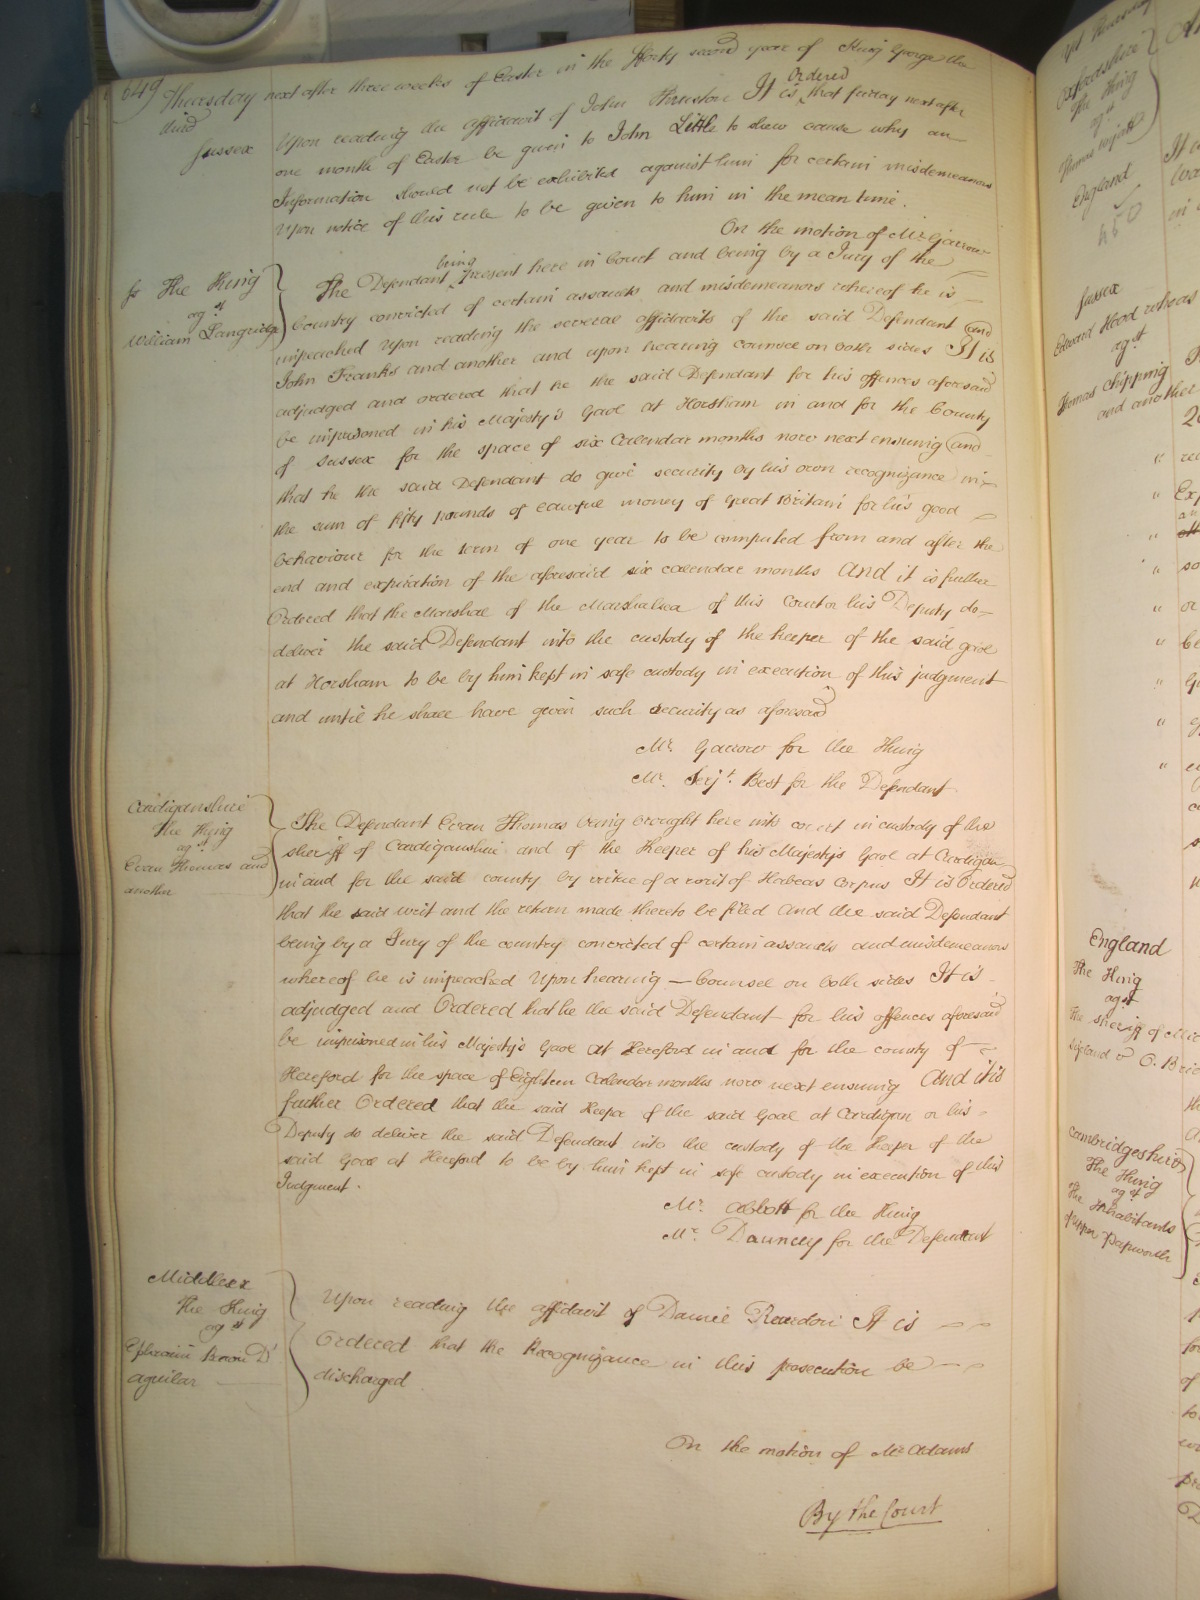 649 Thursday next after three weeks of Easter in the Forty second year of King George the
third
Sussex Upon reading the affidavit of John Thruston It is Ordered that friday next after
one month of Easter be given to John Little to shew cause why an
Information should not be exhibited against him for certain misdemeanors
Upon notice of this rule to be given to him in the mean time.
On the motion of Mr Garrow
The King
agst
William Langridge
The Defendant being present here in Court and being by a Jury of the
Country convicted of certain assaults and misdemeanors whereof he is
impeached Upon reading the several affidavits of the said Defendant and
John Franks and another and upon hearing counsel on both sides It is
adjudged and ordered that he the said Defendant for his offences aforesaid
be imprisoned in his Majesty's Gaol at Horsham in and for the County
of Sussex for the space of six Calendar months now next ensuing and
that he the said Defendant do give security by his own recognizance in
the sum of fifty pounds of lawful money of Great Britain for his good
behaviour for the term of one year to be computed from and after the
end and expiration of the aforesaid six calendar months And it is further
Ordered that the Marshal of the Marshalsea of this Court or his Deputy do
deliver the said Defendant into the custody of the keeper of the said gaol
at Horsham to be by him kept in safe custody in execution of this judgment
and until he shall have given such security as aforesaid
Mr. Garrow for the King
Mr. Serjt. Best for the Defendant
Cardiganshire
The King
agst
Evan Thomas and
another
The Defendant Evan Thomas being brought here into court in custody of the
sheriff of Cardiganshire and of the Keeper of his Majesty's Gaol at Cardigan
in and for the said county by virtue of a writ of Habeas Corpus It is Ordered
that the said writ and the return made thereto be filed And the said Defendant
being by a Jury of the country convicted of certain assaults and misdemeanors
whereof he is impeached Upon hearing Counsel on both sides It is
adjudged and Ordered that he the said Defendant for his offences aforesaid
be imprisoned in his Majesty's Gaol at Hereford in and for the county of
Hereford for the space of Eighteen Calendar months now next ensuing And it is
further Ordered that the said Keeper of the said Gaol at Cardigan or his
Deputy do deliver the said Defendant into the custody of the Keeper of the
said Gaol at Hereford to be by him kept in safe custody in execution of this
Judgment.
Mr. Abbott for the King
Mr. Dauncey for the Defendant
Middlesex
The King
agst
Ephraim Baron D'
aguilar
Upon reading the affidavit of Daniel Reardon It is
Ordered that the Recognizance in this prosecution be
discharged
On the motion of Mr Adams
By the Court
Oxfordshire
The King
agst
England
450
Sussex
Edward Hood
agst
Thomas Chipping
and another
England
The King
agst
The Sheriff of
Cambridgeshire
The King
agst
The Inhabitants
of upper Papworth